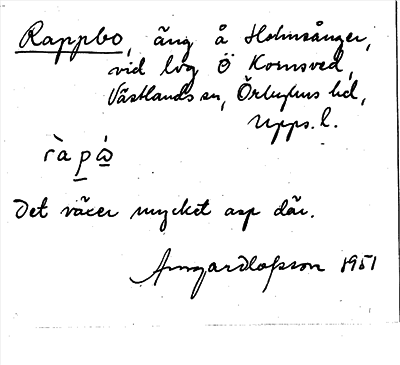 Rappbo, äng å Holmsånger,
vid lög Ö Kornsved,
Västlands sn, Örbyhus hd,
Upps. l.
ràpà̱
Det växer mycket asp där.
Amgard Olsson 1951